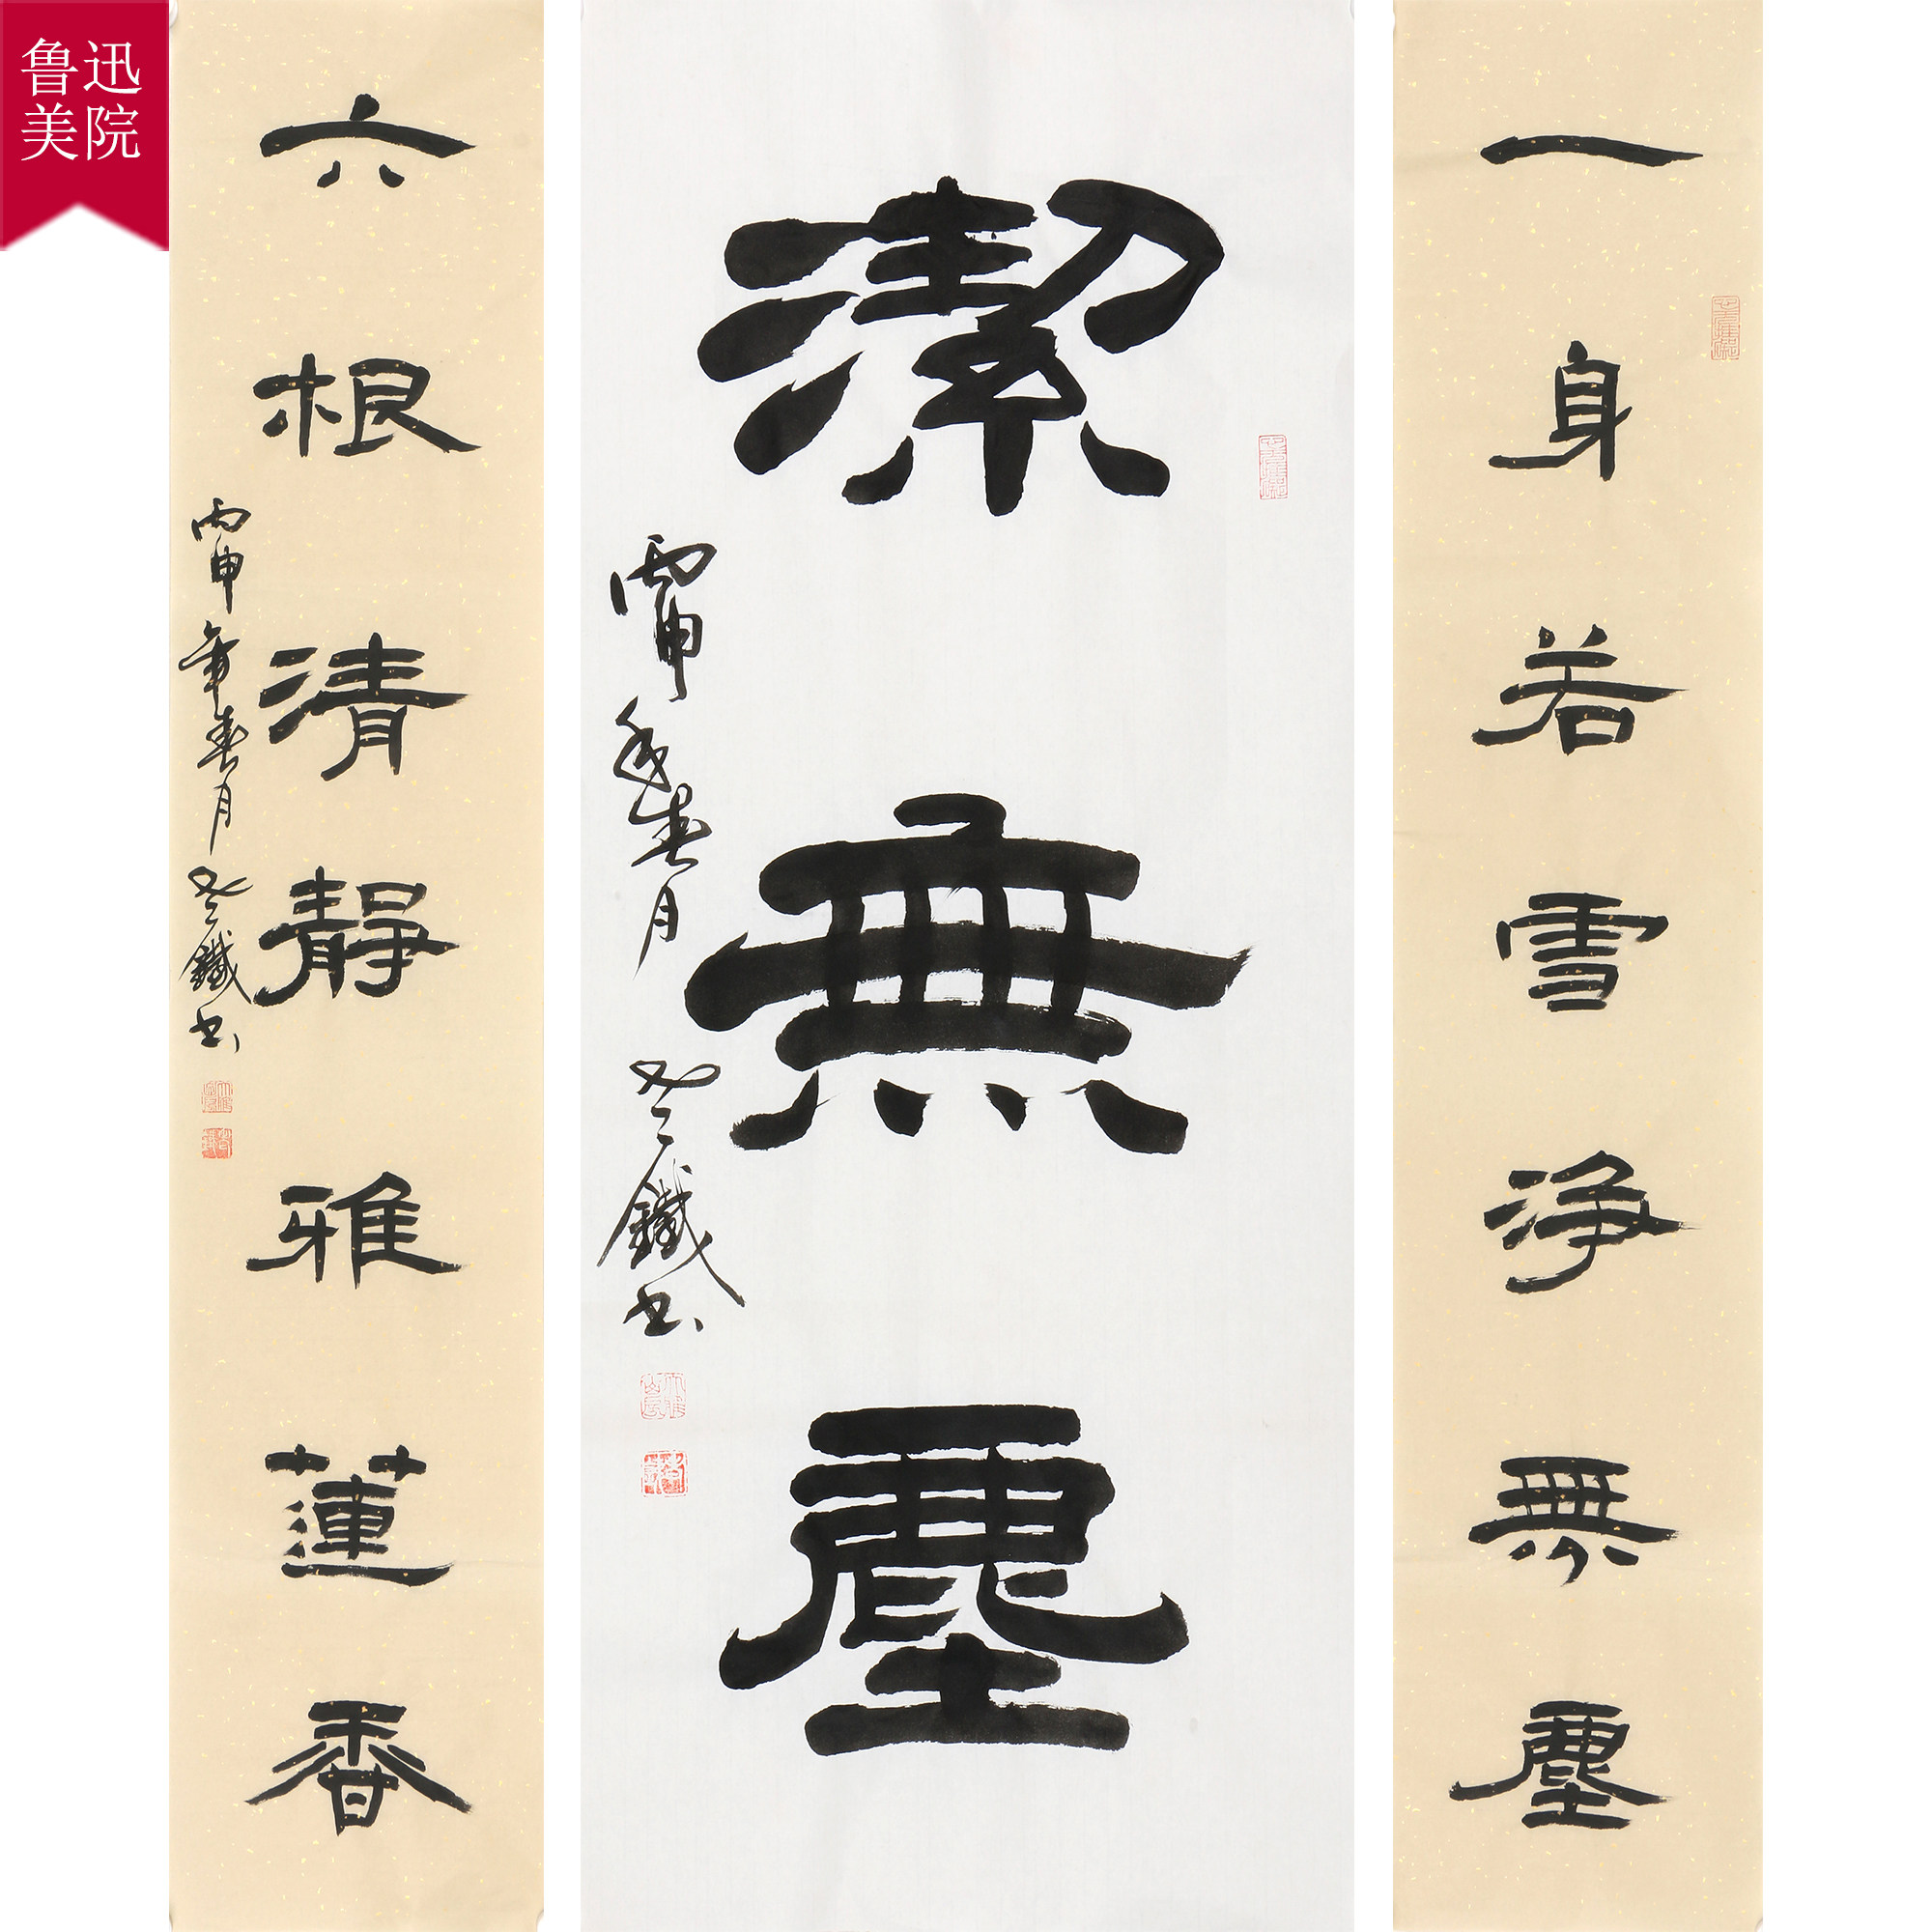 鲁迅
美院
一身若雪净無塵
潔無塵
丙申年春月
鐵书
六根清静雅蓮香
丙申年春月
鐵书